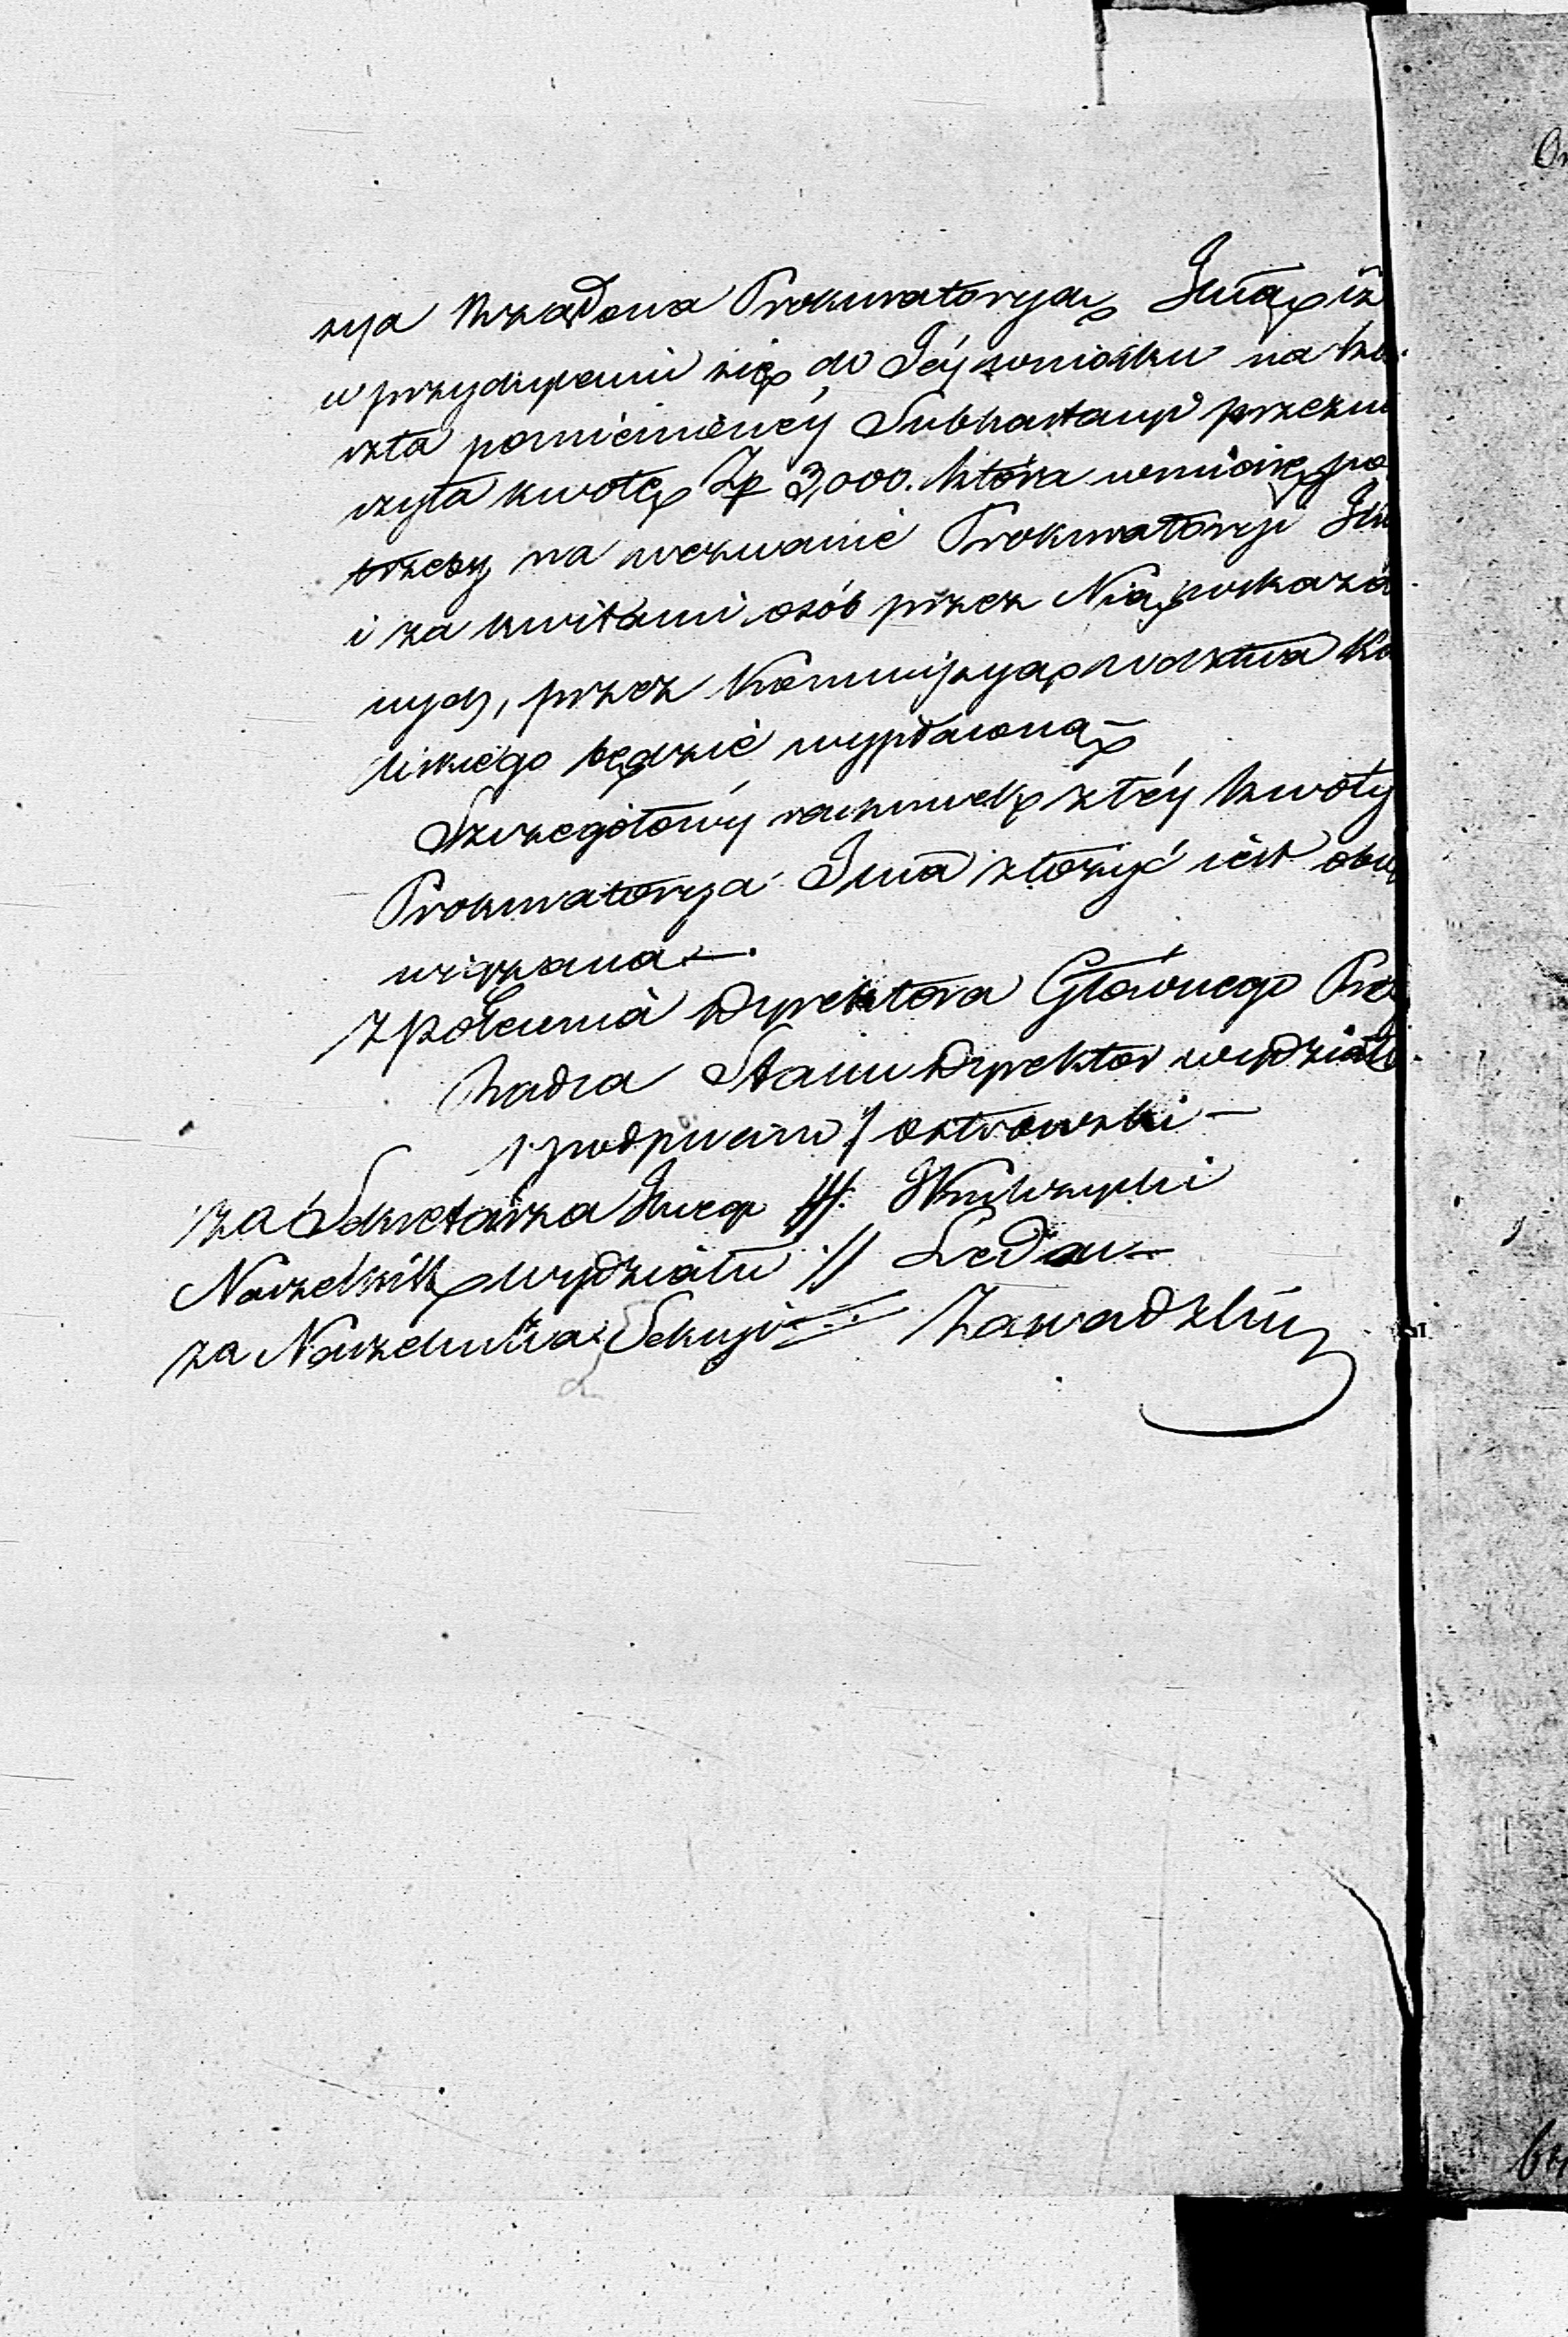 zya Rządowa Prokuratoryą Jłną iż
w przychyleniu się do Jéj wniosku na ko
szta pomienionéy Subhastacyi przezna
czyła kwotę Zp 3,000. która w miarę po
trzeby na wezwanie Prokuratoryi Jln
i za kwitami osób przez Nią wskaza
nych, przez Kommissyą Wdztwa Ka
liskiego będzie wypłaconą
Szczegółowy rachunek z téy kwoty
Prokuratorya Jlna złożyć iest obo
wiązana —.
z polecenia Dyrektora Głównego Prez
Radca Stanu Dyrektor wydziału
/:podpisano:/ Ostrowski —
za Sekretarza Jlnego
Naczelnik wydziału //
za Naczelnika Sekcyi Zawadzki